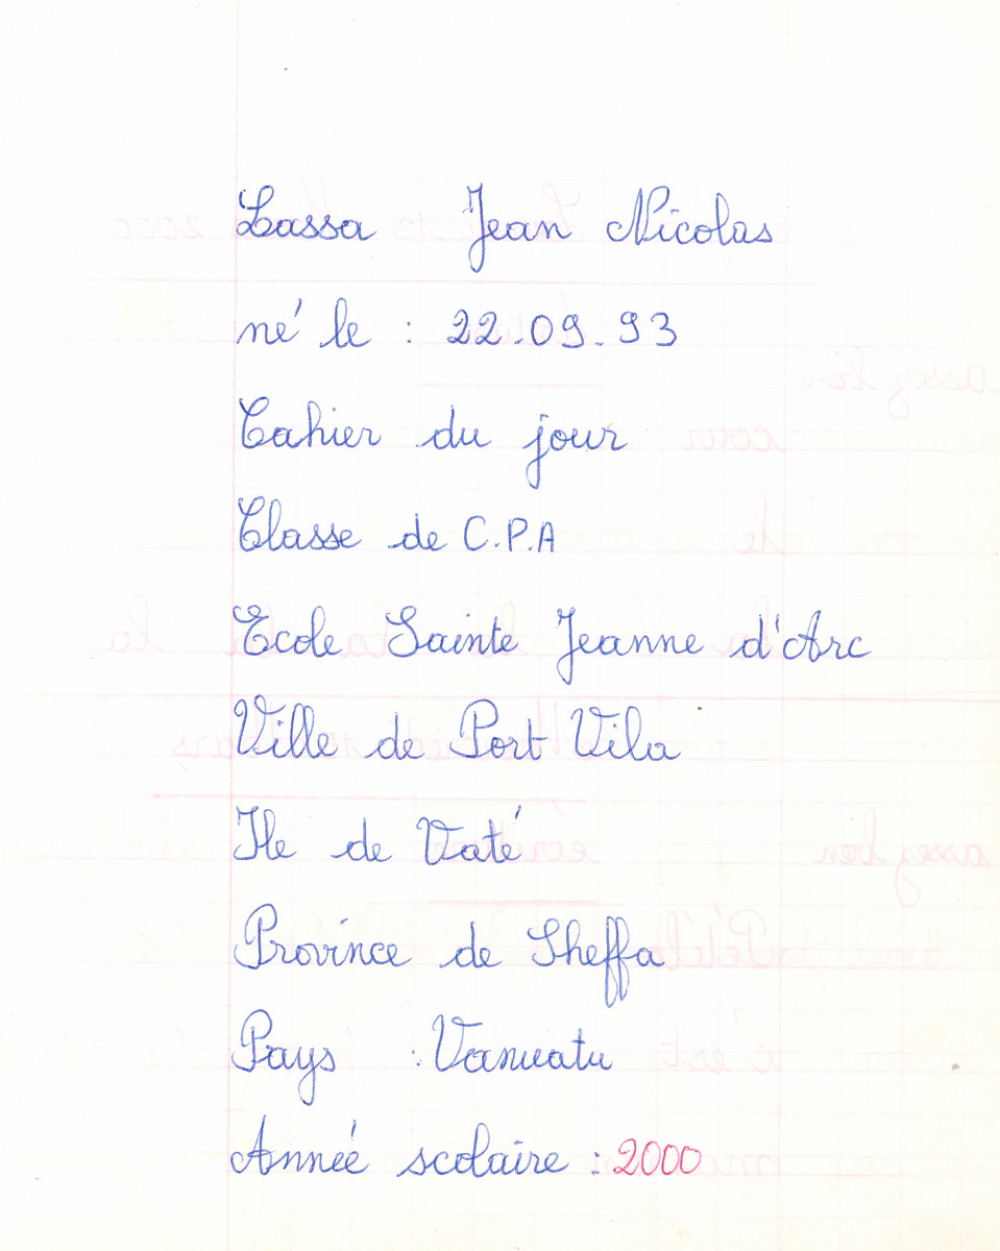 Lassa Jean Nicolas
né le : 22.09.93
Cahier du jour
Classe de C.P.A
Ecole Sainte Jeanne d'Arc
Ville de Port Vila
Ile de Vaté
Province de Sheffa
Pays : Vanuatu
Année scolaire : 2000